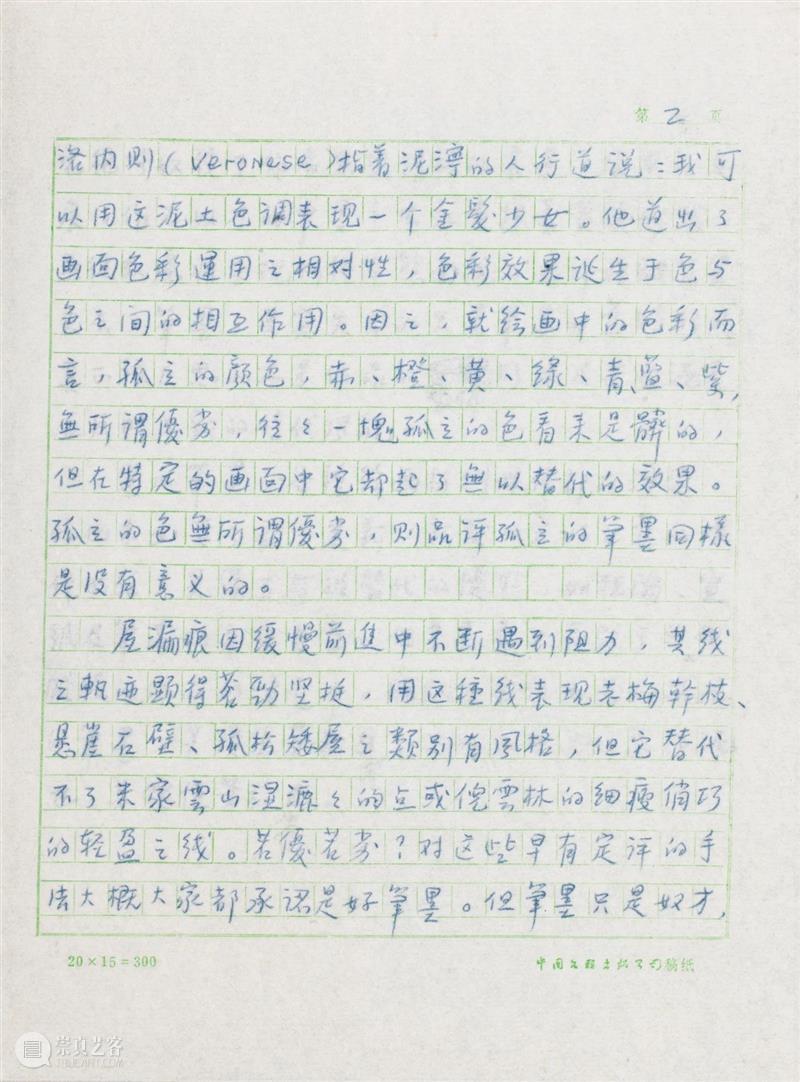 第 2 页
洛内则(Veronese)指着泥濘的人行道说：我可
以用这泥土色调表现一个金髮少女。他道出了
画面色彩運用之相对性，色彩效果诞生于色与
色之间的相互作用。因之，就绘画中的色彩而
言，孤立的颜色，赤、橙、黄、绿、青、蓝、紫，
無所謂優劣，往々一塊孤立的色看来是髒的，
但在特定的画面中它却起了無以替代的效果。
孤立的色無所謂優劣，则品评孤立的筆墨同樣
是没有意义的。
屋漏痕因缓慢前進中不断遇到阻力，其线
之軌迹顕得苍劲坚挺，用这種线表现老梅幹枝、
悬崖石壁、孤松矮屋之類别有風格，但它替代
不了米家雲山湿漉々的点或倪雲林的细瘦俏巧
的轻盈之线。若優若劣？对这些早有定评的手
法大概大家都承認是好筆墨。但筆墨只是奴才，
20×15=300
稿纸
崇真艺客